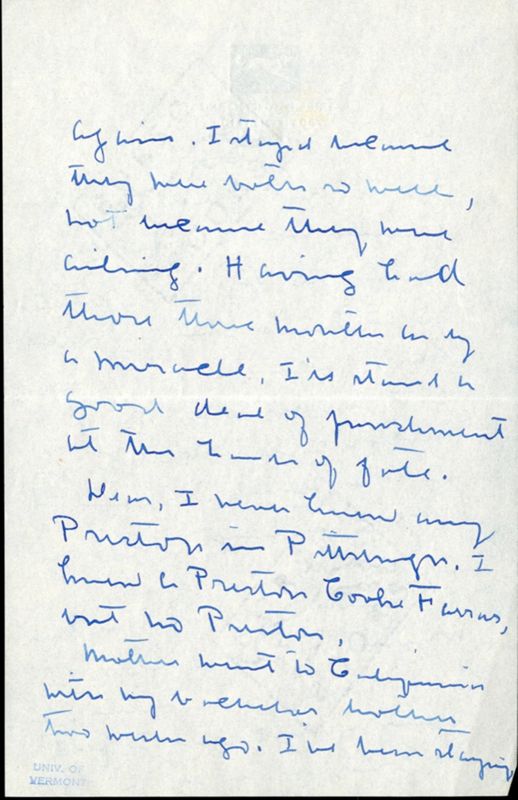 again. I stayed because
they were both so well,
not because they were
ailing. Having had
those three months as by
a miracle, I'd stand a
good deal of punishment
at the hands of fate.
Dear, I never knew any
Prestons in Pittsburgh. I
knew a Preston Cooke Farrar,
but no Preston.
Mother went to California
with my bachelor brother
two weeks ago. I've been staying
UNIV. OF
VERMONT